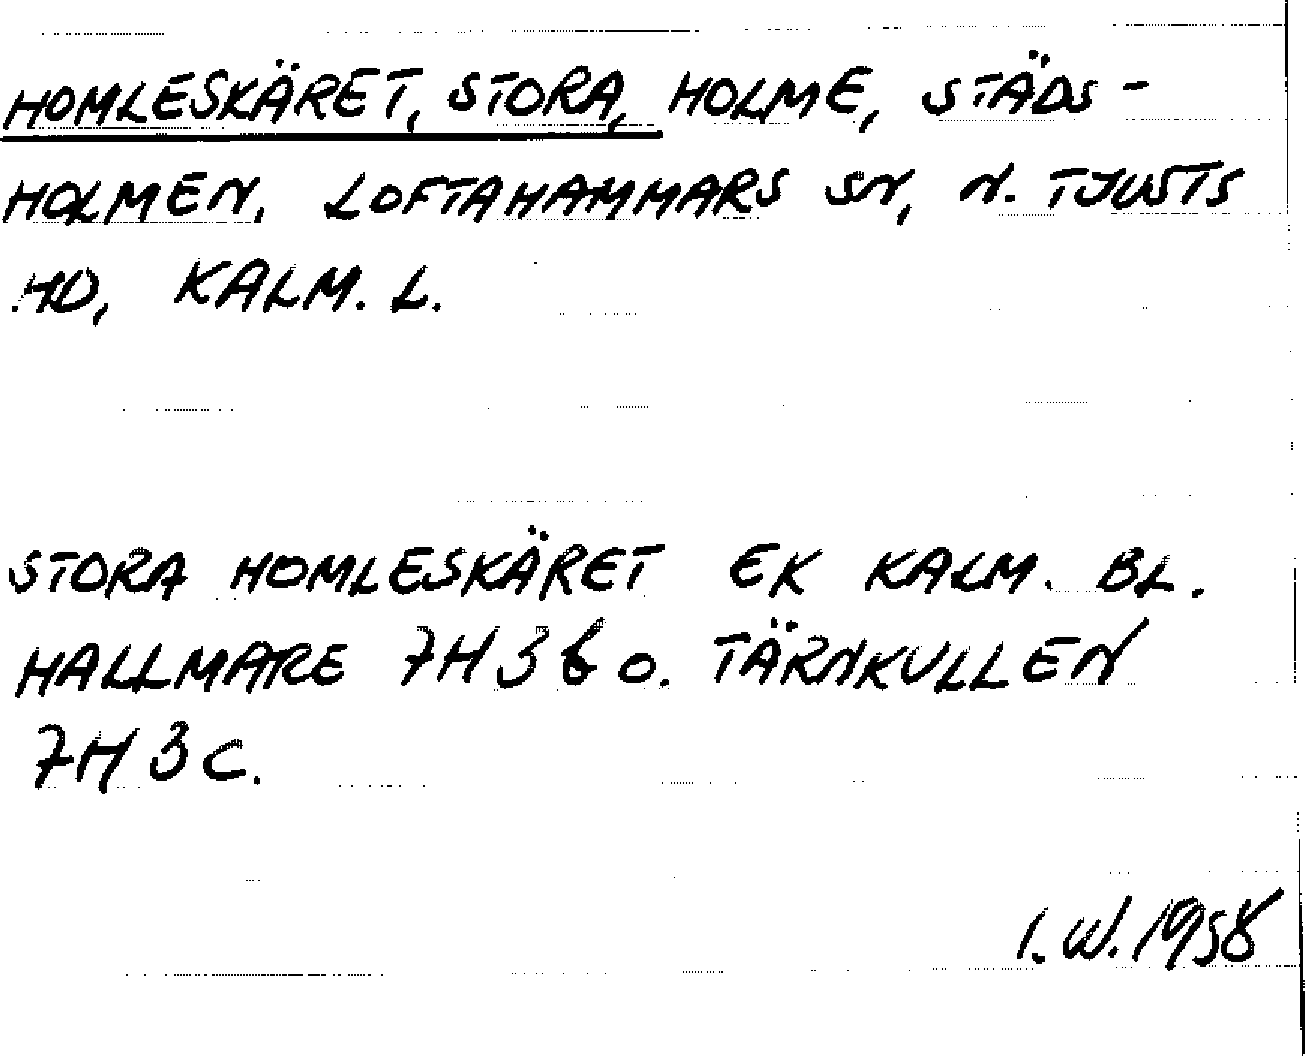 HOMLESKÄRET, STORA, HOLME, STÄDS-
HOLMEN. LOFTAHAMMARS SN, N. TJUSTS
HD, KALM. L.
STORA HOMLESKÄRET EK KALM. BL.
HALLMARE 7H3b o. TÄRNKULLEN
7H3C.
I.W.1958